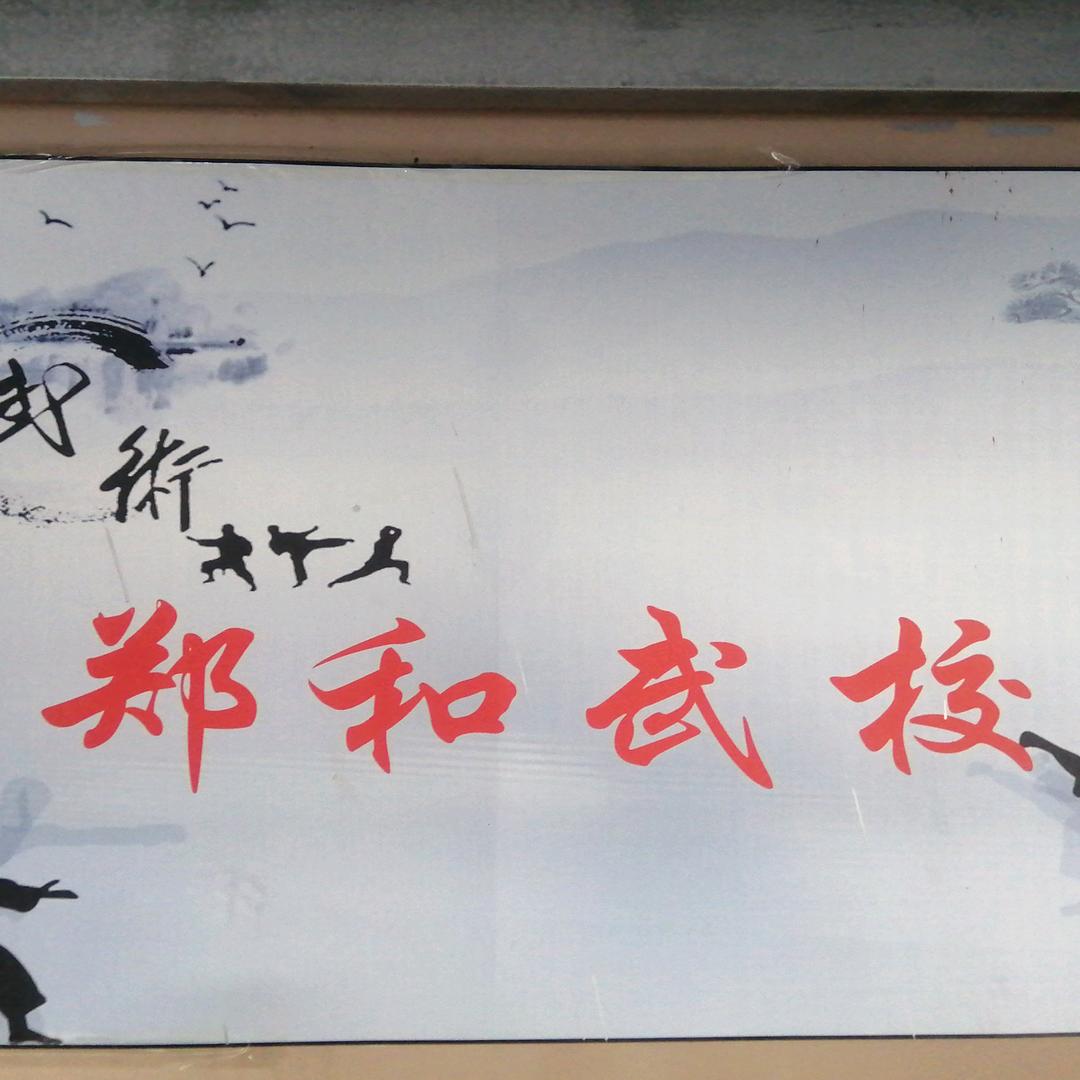 武術
郑和武校